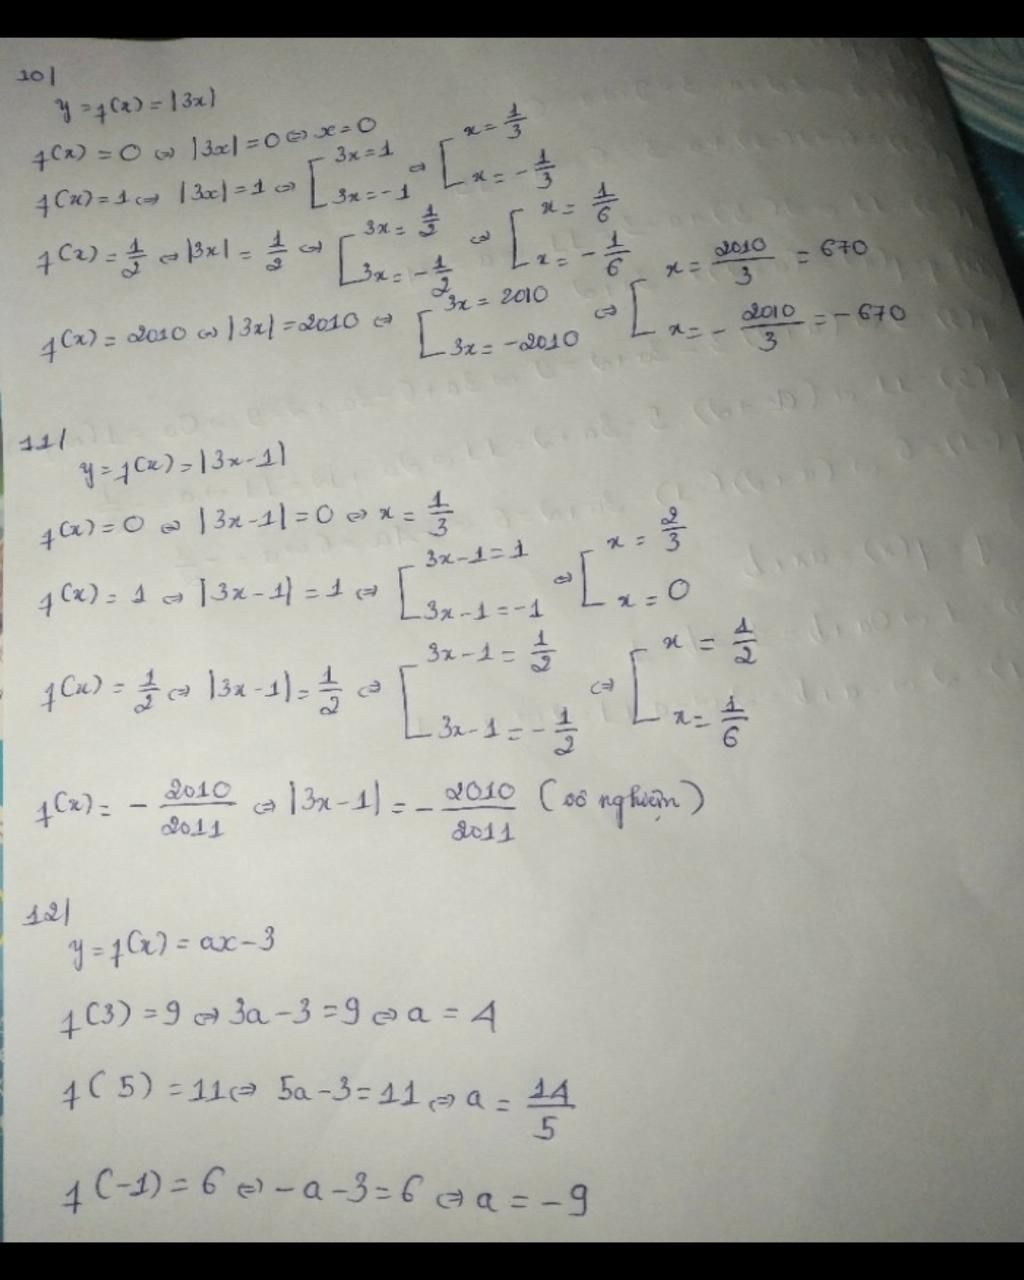 10/
y = f(x) = |3x|
f(x) = 0 ⇔ |3x| = 0 ⇔ x = 0
f(x) = 1 ⇔ |3x| = 1 ⇔ [ 3x = 1 ⇔ [ x = 1/3
3x = -1 x = -1/3
f(x) = 1/2 ⇔ |3x| = 1/2 ⇔ [ 3x = 1/2 ⇔ [ x = 1/6
3x = -1/2 x = -1/6
f(x) = 2010 ⇔ |3x| = 2010 ⇔ [ 3x = 2010 ⇔ [ x = 2010/3 = 670
3x = -2010 x = -2010/3 = -670
11/
y = f(x) = |3x-1|
f(x) = 0 ⇔ |3x-1| = 0 ⇔ x = 1/3
f(x) = 1 ⇔ |3x-1| = 1 ⇔ [ 3x-1 = 1 ⇔ [ x = 2/3
3x-1 = -1 x = 0
f(x) = 1/2 ⇔ |3x-1| = 1/2 ⇔ [ 3x-1 = 1/2 ⇔ [ x = 1/2
3x-1 = -1/2 x = 1/6
f(x) = -2010/2011 ⇔ |3x-1| = -2010/2011 (vô nghiệm)
12/
y = f(x) = ax-3
f(3) = 9 ⇔ 3a-3 = 9 ⇔ a = 4
f(5) = 11 ⇔ 5a-3 = 11 ⇔ a = 14/5
f(-1) = 6 ⇔ -a-3 = 6 ⇔ a = -9